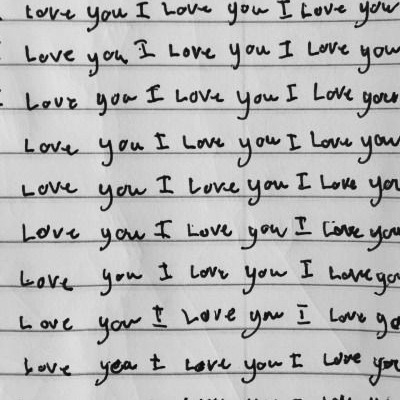 Love you I Love you I Love you
Love you I Love you I Love you
I Love you I Love you I Love you
Love you I Love you I Love you
Love you I Love you I Love you
Love you I Love you I Love you
Love you I Love you I Love you
Love you I Love you I Love yo
Love you I Love you I Love you